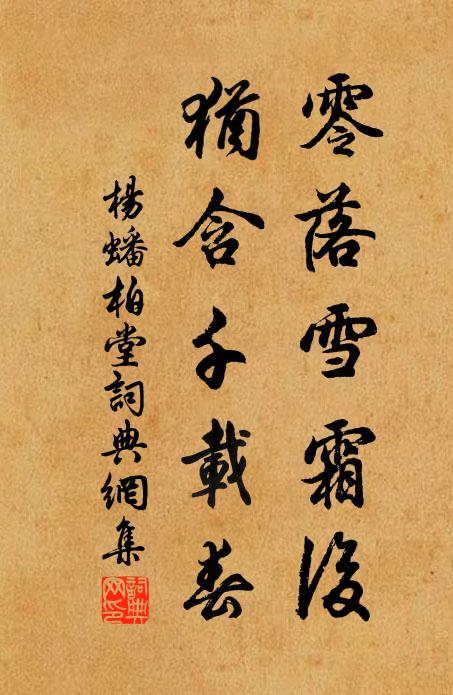 零落雪霜後
猶含千載春
楊蟠柏堂詞典網集
詞典網印